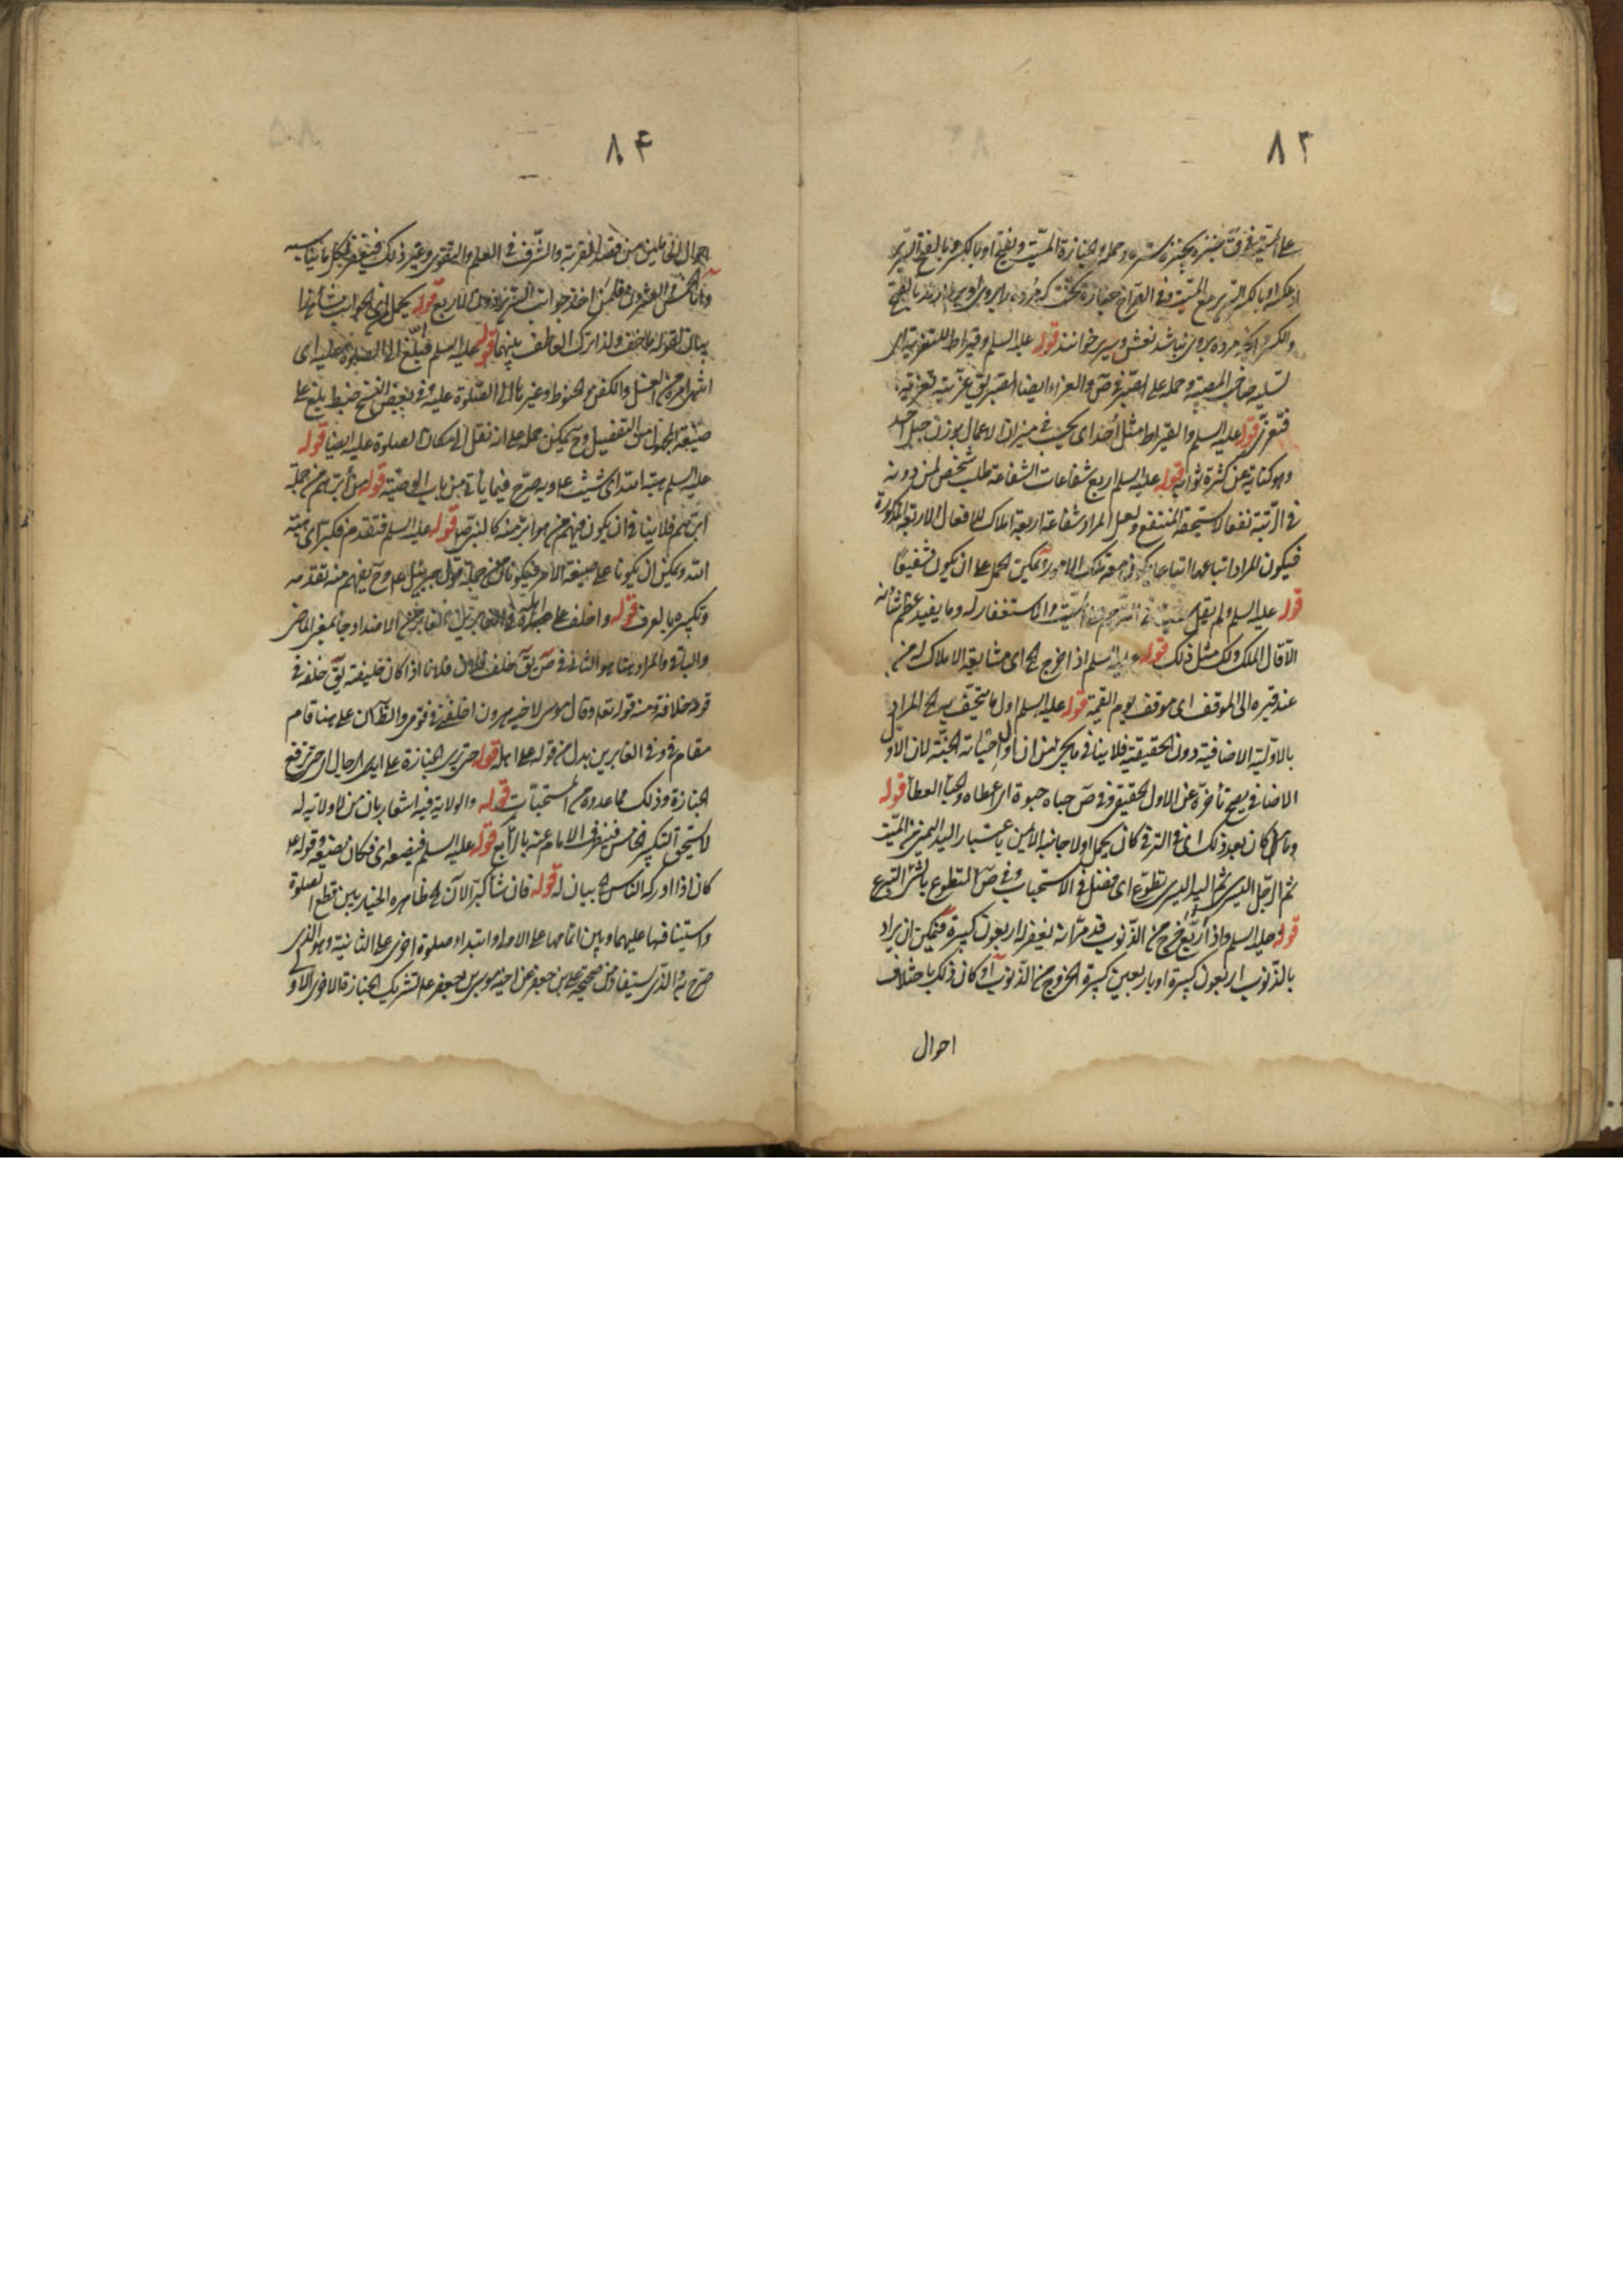 ٨٣
على الميت في ق جنزه يجنزه ستره وحمله والجنازة الميت ويفتح او بالكسر وبالفتح السرير
او عكسه او بالكسر السرير مع الميت وفي الصراح جنازة تخت كه مرده
والكسر مرده بروى نباشد نعش وسرير خوانند قوله عليه السلم وقيراط للتعزية اى
تسلية صاحب المصيبة وحمله على الصبر في ص والعزاء ايضا الصبر يق عزيته تعزية
فتعزى قوله عليه السلم والقيراط مثل أحد اى بحيث في ميزان الاعمال بوزن جبل احد
وهو كناية عن كثرة ثوابه قوله عليه السلم اربع شفاعات الشفاعة طلب شخص لمن دونه
في الرتبة نفعا لاستحقه المنتفع ولعل المراد شفاعة اربعة املاك للافعال الاربعة المذكورة
فيكون المراد اتباعها اتباعا تلك الامور ويمكن الحمل على ان يكون شفيعًا
قوله عليه السلم ولم يقل الميت والاستغفار له وما يفيد عظم شأنه
الا قال الملك ولك مثل ذلك قوله عليه السلم اذا خرج الخ اى مشايعة الاملاك له من
عند قبره الى الموقف اى موقف يوم القيمة قوله عليه السلم اول ما يتحف به الخ المراد
بالاولية الاضافية دون الحقيقية فلا ينافي ما يجئ من ان اول حبائه الجنة لان الاول
الاضافي يصح تأخره عن الاول الحقيقي وفي ص حباه حبوة اى اعطاه والحبا العطا قوله
وما كان بعد ذلك اى في الترـ كان يحمل اولا جانبه الايمن باعتبار اليد اليمنى من الميت
ثم الرجل اليسرى ثم اليد اليسرى تطوع اى مفضل في الاستحباب وفي ص التطوع بالشئ التبرع
قوله عليه السلم واذا ربع خرج من الذنوب قد مر انه يغفر له اربعون كبيرة فيمكن ان يراد
بالذنوب اربعون كبيرة او باربعين كبيرة الخروج من الذنوب او كان ذلك باختلاف
احوال
٨۴
احوال الحاملين من قصد القربة والشرف في العلم والتقوى وغير ذلك فيغفر لكل ما يناسبه
واما الخمس والعشرون فلمن اخذ جوانب السرير دون الاربع قوله يحمل من الجوانب
بيان لقوله ما خف ولذا ترك العاطف بينهما قوله عليه السلم فبلغ الى الصلوة عليه اى
انتهى امره من الغسل والكفن والحنوط وغيرها الى الصلوة عليه وفي بعض النسخ ضبط بلغ على
صيغة المجهول من التفعيل وح يمكن حمله على انه نقل الى مكان الصلوة عليه ايضا قوله
عليه السلم هبة الله اى شيث على ويصرح فيما يأتي من باب الوصية قوله من أبرهم من جملة
ابرهم فلا ينافي ان يكون فيهم من هو ابر منه كالنبي ص قوله عليه السلم فتقدم فكبر اى هبة
الله ويمكن ان يكونا على صيغة الامر فيكونان من جملة قول جبرئيل على وح يفهم منه تقدمه
وتكبيره بالعرف قوله واخلف على اهله في الغابرين الغابر من الاضداد جاء بمعنى الماضي
والباقي والمراد هنا هو الثاني في ص يق خلف فلان فلانا اذا كان خليفته يق خلفه في
قومه خلافة ومنه قوله تعا وقال موسى لاخيه هرون اخلفني في قومى والظ كان على هنا قام
مقام في وفي الغابرين بدل من قوله على اهله قوله حتى يرى الجنازة على ايدى الرجال اى حتى ترفع
الجنازة وذلك مما عدوه من المستحبات قوله والولاية فيه اشعار بان من لا ولاية له
لا يستحق التكبير الخامس فينصرف الامام عنه بالرابع قوله عليه السلم فيضعه اى فكان يضعه وقوله
كان اذا ادركه الناس الخ بيان له قوله فان شا كبر الآن الخ ظاهره الخيار بين قطع الصلوة
واستينافها عليهما وبين اتمامها على الاول وابتداء صلوة اخرى على الثانية وهو الذى
صرح به والذى يستفاد من صحيحة على بن جعفر عن اخيه موسى بن جعفر على التشريك الجنازة الاخرى الاو